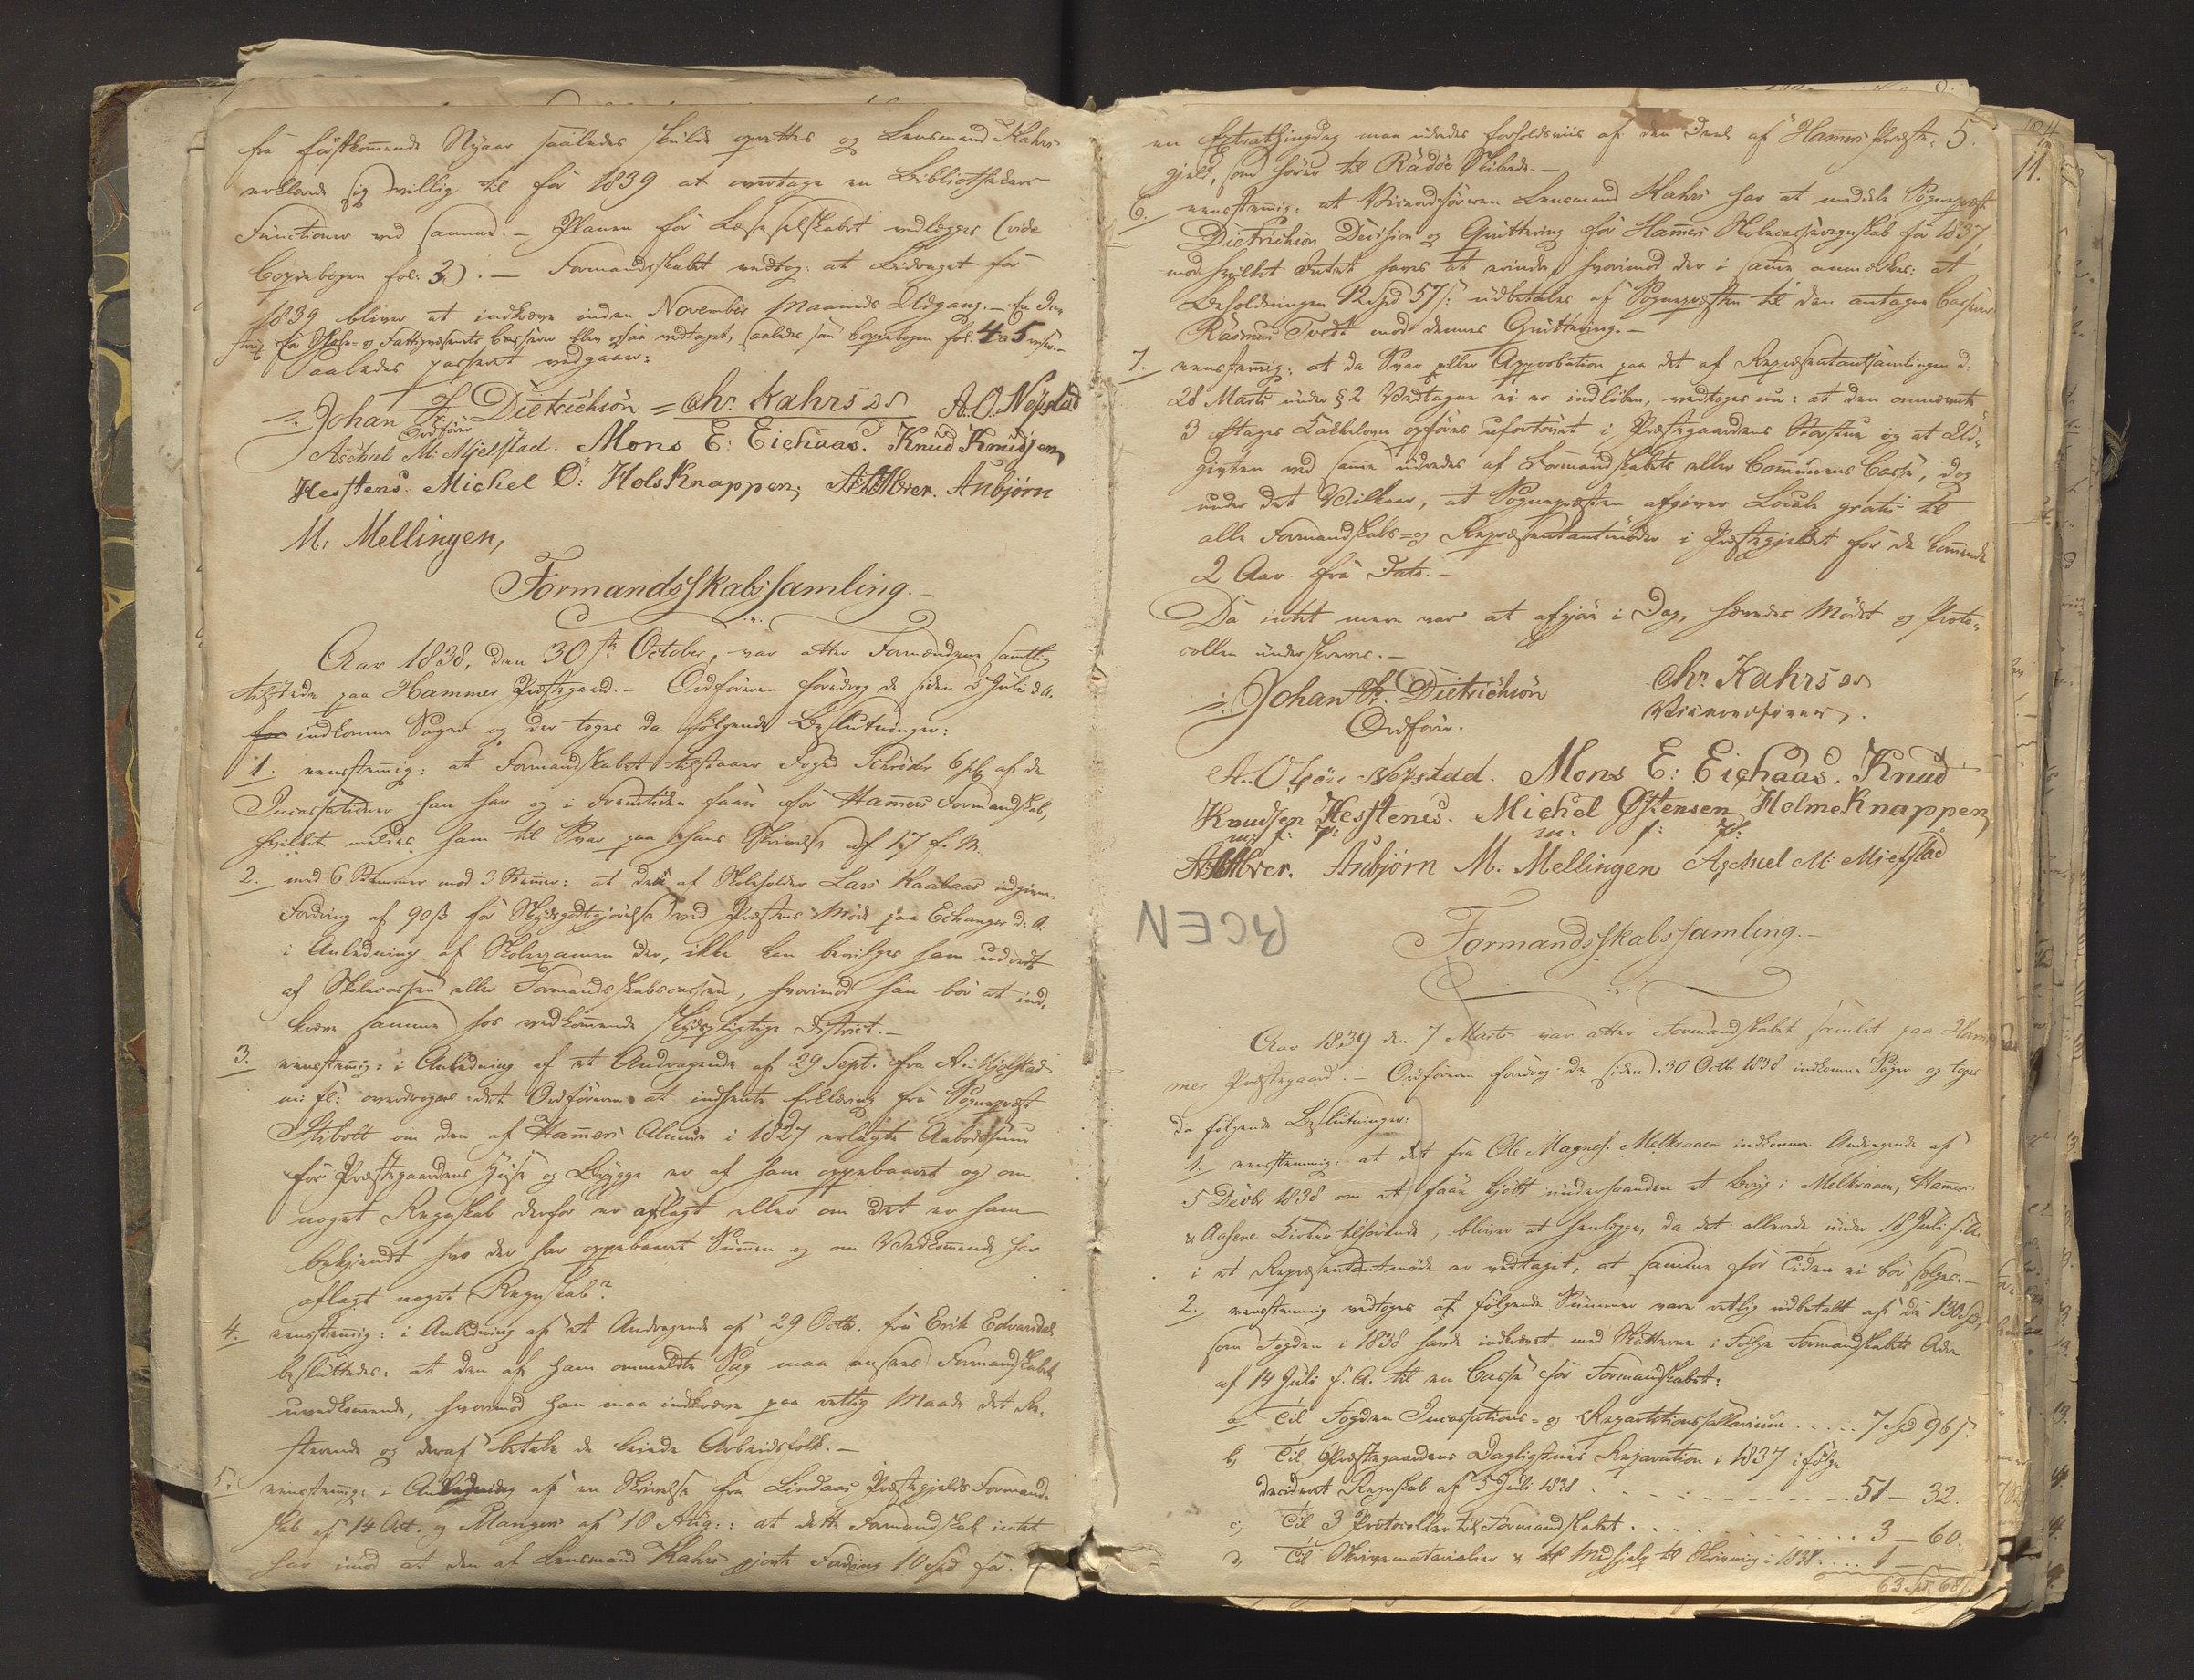 fra förstkommende Nyaar saaledes skulde oprettes og Lensmand Kahrs
erklærede sig villig til for 1839 at overtage en Bibliothekars
Functioner ved samme. – Planen for Læseselskabet vedlægges (vide
Copiebogen fol: 3). – Formandsskabet vedtog: at Bidraget for
1839 bliver at indkræve inden November Maaneds Udgang. – En
for Skole- og Fattigvæsenets Casserer blev ogsaa vedtaget, saaledes som Copiebogen fol. 4 & 5 viser. –
Saaledes passeret vedgaaer:
Johan Fr. Dietrichson = Chr. Kahrs A. O. Nepstad
Ordförer
Aschiel M: Mjelstad. Mons E: Eichaas. Knud Knudsen
Hesstens. Michel Ö: Holsknappen; Anbjørn
M: Mellingen,
Formandsskabssamling. –
Aar 1838, den 30te October, var atter Formændene samtlig
tilstede paa Hammer Præstegaard. – Ordföreren foredrog de siden 5 Juli d. A.
indkomne Sager og der toges da følgende Beslutninger:
1. eenstemig: at Formandskabet tilstaaer Foged Schröder 6 pC af de
Incassationer han har og i Fremtiden faaer for Hamers Formandskab,
hvilket meldes ham til Svar paa hans Skrivelse af 17 f. M.
2. med 6 Stemmer mod 3 Stemer: at den af Skoleholder Lars Kaalaas indgivne
Fordring af 90 ß for Skydsgodtgjörelse ved Præstens Möde paa Echanger d: A.
i Anledning af Skoleexamen der, ikke kan bevilges ham udredt
af Skolecassen eller Formandsskabscassen, hvorimod han bör at ind-
kræve samme hos vedkommende skydspligtige District. –
3. eenstemig: i Anledning af et Andragende af 29 Sept. fra A. Mjelstad
m: fl: overdroges det Ordföreren at indhente Erklæring fra Sognepræst
Stibolt om den af Hamers Almue i 1827 erlagte Aabodssum
for Præstegaardens Huse og Brygge er af ham oppebaaret og om
noget Regnskab derfor er aflagt eller om det er ham
bekjendt hvo der har oppebaaret Summen og om Vedkommende har
aflagt noget Regnskab?
4. eenstemig: i Anledning af et Andragende af 29 Octb. fra Erik Edvardsdal
besluttedes: at den af ham anmeldte Sag maa ansees Formandskabet
uvedkommende, hvorimod han maa indkræve paa retlig Maade det Re-
sterende og deraf betale de leiede Arbeidsfolk. –
5. eenstemig: i Anledning af en Skrivelse fra Lindaas Præstegjelds Formand-
skab af 14 Oct. og Mangers af 10 Aug.: at dette Formandskab intet
har imod at den af Lensmand Kahrs gjorte Fordring 10 Spd for
en Extrathingdag maa udredes forholdsviis af den Deel af Hamers Præste- 5.
gjeld, som hører til Radöe Skibrede. –
6. eenstemig: at Viceordföreren Lensmand Kahrs har at meddele Sognepræst
Dietrichson Decision og Qvittering for Hamers Skolecasseregnskab for 1837,
mod hvilket Intet haves at erindre, hvorimod der i samme anmærkes: at
Beholdningen 12 Spd 57 ß udbetales af Sognepræsten til den antagne Casserer
Rasmus Tvedt mod dennes Qvittering. –
7. eenstemig: at da Svar eller Approbation paa det af Repræsentantsamlingen d.
28 Marts under § 2 Vedtagne ei er indløben, vedtoges nu: at den omnævnte
3 Etages Kakkelovn opføres ufortövet i Præstegaardens Storstue og at Ud-
giften ved samme udredes af Formandskabets eller Communens Casse, dog
under det Vilkaar, at Sognepræsten afgiver Locale gratis til
alle Formandskabs- og Repræsentantmöder i Præstegjeldet for de kommende
2 Aar fra Dato. –
Da intet mere var at afgjöre i Dag, hævedes Mödet og Proto-
collen underskreves. –
Johan Fr. Dietrichson Chr. Kahrs
Ordförer. Viceordförer.
A. Olsön Nepstad. Mons E: Eichaas. Knud
Knudsen Hesstens. Michel Østensen Holmeknappen
m: f: P: m: f: P:
Anbjörn M: Mellingen Aschiel M: Mjelstad
Formandsskabssamling. –
Aar 1839 den 7 Marts var atter Formandskabet samlet paa Ham-
mer Præstegaard. – Ordföreren foredrog de siden 30 Octb 1838 indkomne Sager og toges
da følgende Beslutninger:
1. eenstemmig: at det fra Ole Magnes. Melkraaen indkomne Andragende af
5 Decbr 1838 om at faae kjøbt underhaanden et Brug i Melkraaen, Hamers
& Aasene Kirker tilhørende, bliver at henlægge, da det allerede under 18 Juli f. A.
i et Repræsentantmöde er vedtaget, at samme for Tiden ei bör sælges. –
2. eenstemmig vedtoges at følgende Summer vare retlig udbetalt af de 130 Spd,
som Fogden i 1838 havde indkrævet med Skatterne i Følge Formandskabets Acter
af 14 Juli f. A. til en Casse for Formandskabet:
a) Til Fogden Incassations- og Repartitionssallarium . . . . 7 Spd 96 ß.
b) Til Præstegaardens Dagligstues Reparation i 1837 ifølge
decideret Regnskab af 5 Juli 1838 . . . . 51 – 32.
c) Til 3 Protocoller til Formandskabet . . . . 3 – 60.
d) Til Skrivematerialier & til Medhjelp til Skrivning i 1838 . . . . 1 –
63 Spd 68 ß.